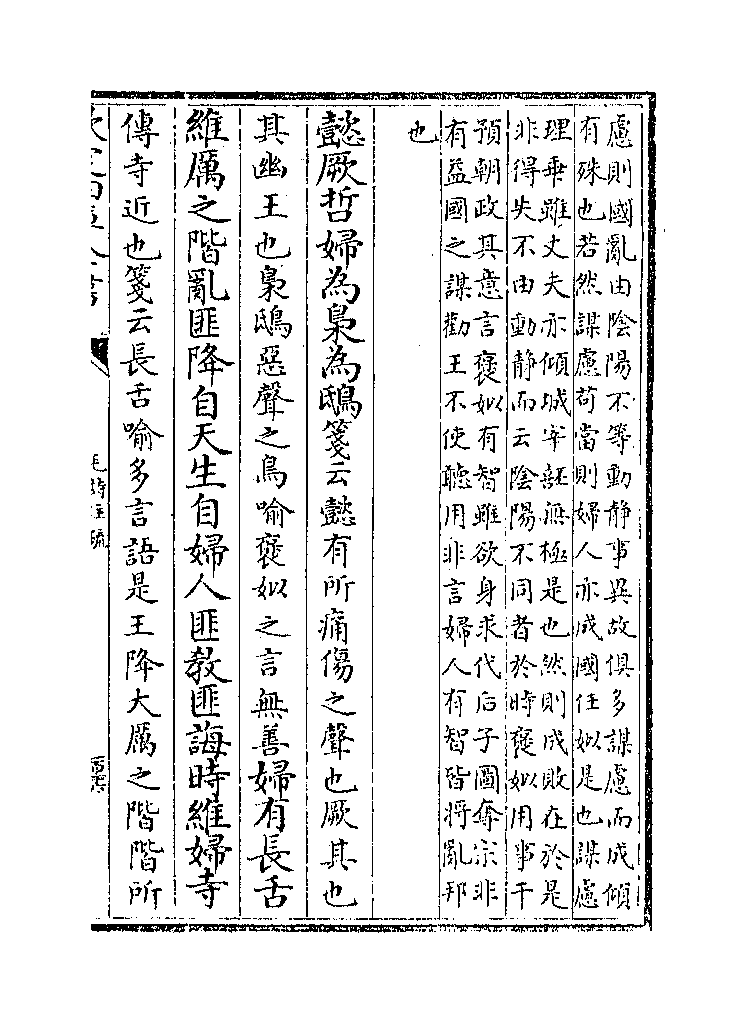 慮則國亂由陰陽不等動静事異故俱多謀慮而成傾
有殊也若然謀慮苟當則婦人亦成國任姒是也謀慮
理乖雖丈夫亦傾城宰嚭無極是也然則成敗在於是
非得失不由動静而云陰陽不同者於時褒姒用事干
預朝政其意言褒姒有智雖欲身求代后子圖奪宗非
有益國之謀勸王不使聽用非言婦人有智皆將亂邦
也
懿厥哲婦為梟為鴟箋云懿有所痛傷之聲也厥其也
其幽王也梟鴟惡聲之鳥喻褒姒之言無善婦有長舌
維厲之階亂匪降自天生自婦人匪教匪誨時維婦寺
傳寺近也箋云長舌喻多言語是王降大厲之階階所
毛詩注疏